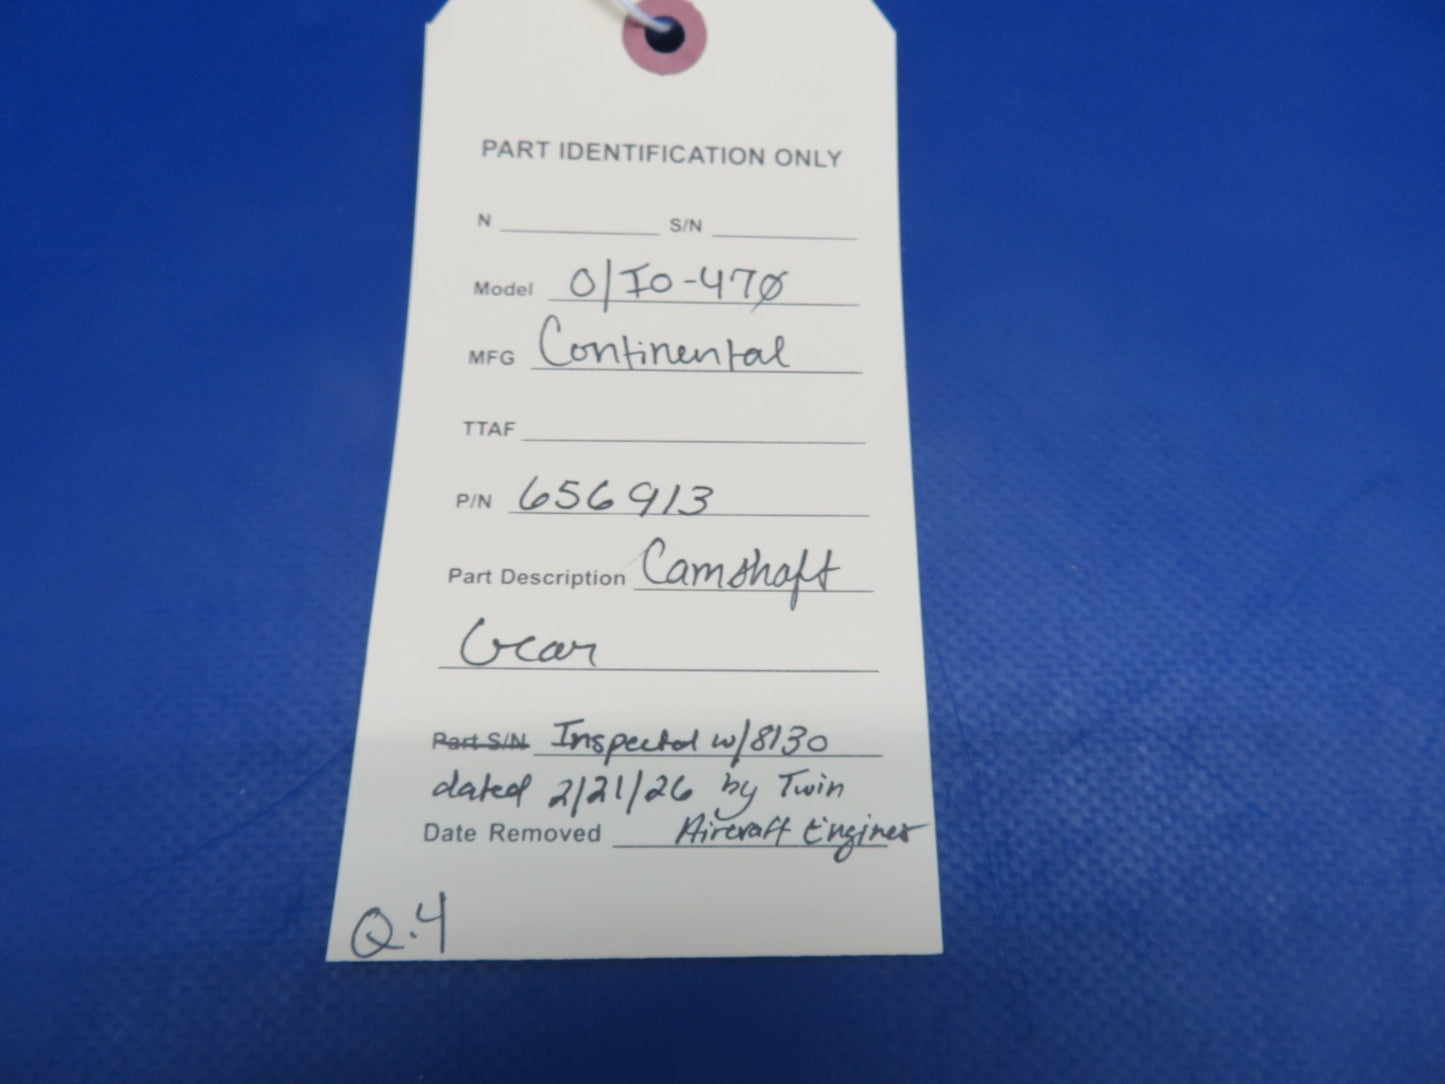 PART IDENTIFICATION ONLY
N S/N
Model O/IO-470
MFG Continental
TTAF
P/N 656913
Part Description Camshaft
Gear
Part S/N Inspected w/8130
dated 2/21/26 by Twin
Date Removed Aircraft Engines
Q.4